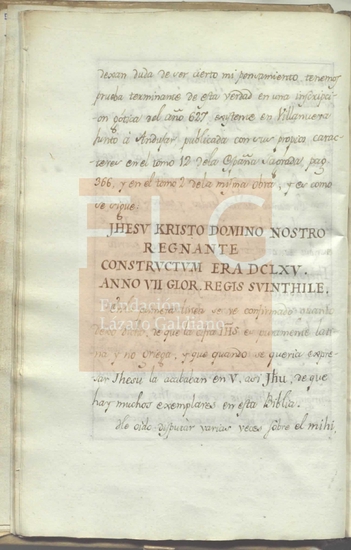 dexan duda de ser cierto mi pensamiento, tenemos
prueba terminante de esta verdad en una inscripci-
on gotica del año 627 existente en Villanueva
junto à Andujar publicada con sus propios carac-
teres en el tomo 12 de la España Sagrada, pag.
366, y en el tomo 2 de la misma obra, y es como
se sigue.
JHESV KRISTO DOMINO NOSTRO
REGNANTE
CONSTRVCTVM ERA DCLXV.
ANNO VII GLOR. REGIS SVINTHILE,
linea se ve confirmado quanto
dexo dicho, de que la cifra IHS. es puramente lati-
na y no griega, y que quando se queria expre-
sar Jhesu la acababan en V, asi, Jhu, de que
hay muchos exemplares en esta Biblia.
He oido disputar varias veces sobre el mihi,
FLG
Fundación
Lázaro Galdiano